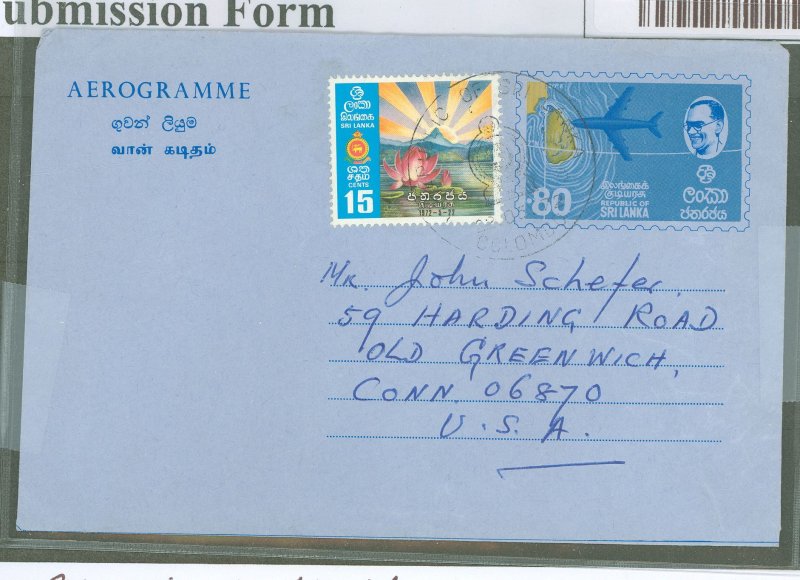 ubmission Form
AEROGRAMME
ගුවන් ලියුම
வான் கடிதம்
ශ්‍රී ලංකා
இலங்கை
SRI LANKA
ශත
சதம்
CENTS
15
ජනරජය
குடியரசு
1972-5-22
COLOMBO
·80
இலங்கைக்
குடியரசு
REPUBLIC OF
SRI LANKA
ශ්‍රී
ලංකා
ජනරජය
Mr. John Schefer.
59 HARDING ROAD
OLD GREENWICH,
CONN. 06870
U.S.A.